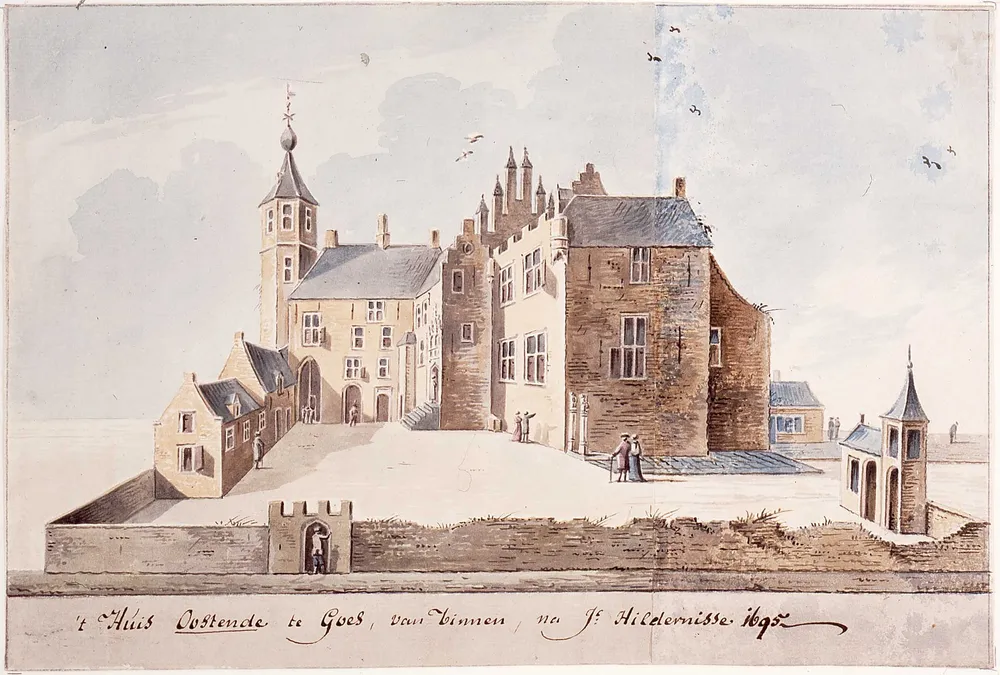 't Huis Oostende te Goes, van binnen, na Jº Hildernisse 1695